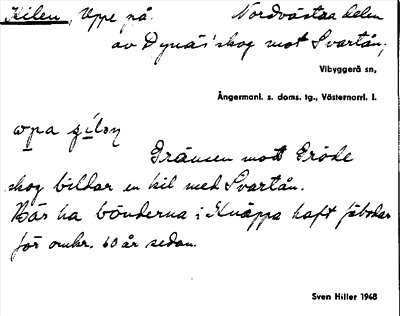 Kilen, Uppe på Nordvästra delen
av Dynäs' skog mot Svartån,
Vibyggerå sn,
Ångermanl. s. doms. tg., Västernorrl. l.
Gränsen mot Eröde
skog bildar en kil med Svartån.
Här ha bönderna i Knäppa haft fäbodar
för omkr. 60 år sedan.
Sven Hiller 1948